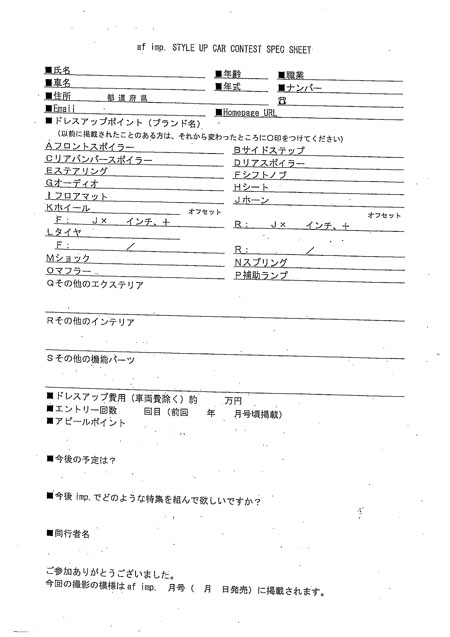 af imp. STYLE UP CAR CONTEST SPEC SHEET
■氏名 ■年齢 ■職業
■車名 ■年式 ■ナンバー
■住所 都道府県 ☎
■Email ■Homepage URL
■ドレスアップポイント（ブランド名）
（以前に掲載されたことのある方は、それから変わったところに〇印をつけてください）
Aフロントスポイラー Bサイドステップ
Cリアバンパースポイラー Dリアスポイラー
Eステアリング Fシフトノブ
Gオーディオ Hシート
Iフロアマット Jホーン
Kホイール オフセット オフセット
F： J× インチ、＋ R： J× インチ、＋
Lタイヤ
F： ／ R： ／
Mショック Nスプリング
Oマフラー P補助ランプ
Qその他のエクステリア
Rその他のインテリア
Sその他の機能パーツ
■ドレスアップ費用（車両費除く）約 万円
■エントリー回数 回目（前回 年 月号頃掲載）
■アピールポイント
■今後の予定は？
■今後imp.でどのような特集を組んで欲しいですか？
■同行者名
ご参加ありがとうございました。
今回の撮影の模様はaf imp. 月号（ 月 日発売）に掲載されます。